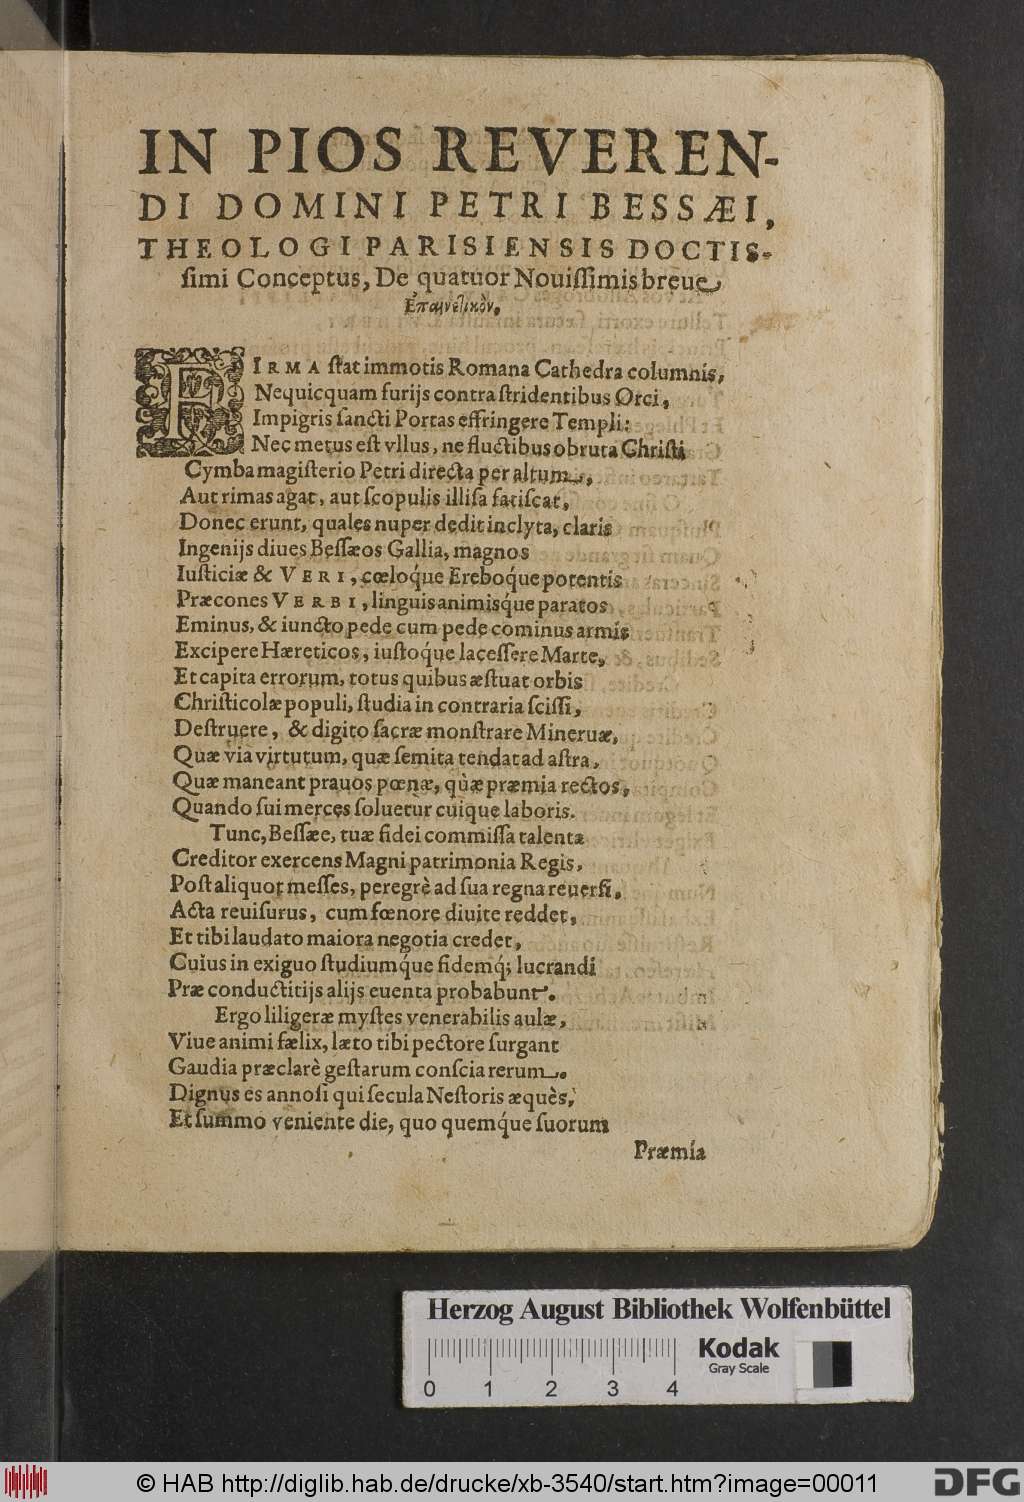 IN PIOS REVEREN-
DI DOMINI PETRI BESSÆI,
THEOLOGI PARISIENSIS DOCTIS-
ſimi Conceptus, De quatuor Nouiſſimis breue
Ἐπαινετικὸν.
FIRMA ſtat immotis Romana Cathedra columnis,
Nequicquam furijs contra ſtridentibus Orci,
Impigris ſancti Portas effringere Templi:
Nec metus eſt vllus, ne fluctibus obruta Chriſti
Cymba magiſterio Petri directa per altum,
Aut rimas agat, aut ſcopulis illiſa fatiſcat,
Donec erunt, quales nuper dedit inclyta, claris
Ingenijs diues Beſſæos Gallia, magnos
Iuſticiæ & VERI, cœloq́ue Ereboq́ue potentis
Præcones VERBI, linguis animisq́ue paratos
Eminus, & iuncto pede cum pede cominus armis
Excipere Hæreticos, iuſtoq́ue laceſſere Marte,
Et capita errorum, totus quibus æſtuat orbis
Chriſticolæ populi, ſtudia in contraria ſciſſi,
Deſtruere, & digito ſacræ monſtrare Mineruæ,
Quæ via virtutum, quæ ſemita tendat ad aſtra,
Quæ maneant prauos pœnæ, quæ præmia rectos,
Quando ſui merces ſoluetur cuique laboris.
Tunc, Beſſæe, tuæ fidei commiſſa talenta
Creditor exercens Magni patrimonia Regis,
Poſt aliquot meſſes, peregrè ad ſua regna reuerſi,
Acta reuiſurus, cum fœnore diuite reddet,
Et tibi laudato maiora negotia credet,
Cuius in exiguo ſtudiumq́ue fidemq́; lucrandi
Præ conductitijs alijs euenta probabunt.
Ergo liligeræ myſtes venerabilis aulæ,
Viue animi fælix, læto tibi pectore ſurgant
Gaudia præclarè geſtarum conſcia rerum.
Dignus es annoſi qui ſecula Neſtoris æquès,
Et ſummo veniente die, quo quemq́ue ſuorum
Præmia
Herzog August Bibliothek Wolfenbüttel
Kodak
Gray Scale
0 1 2 3 4
© HAB http://diglib.hab.de/drucke/xb-3540/start.htm?image=00011
DFG